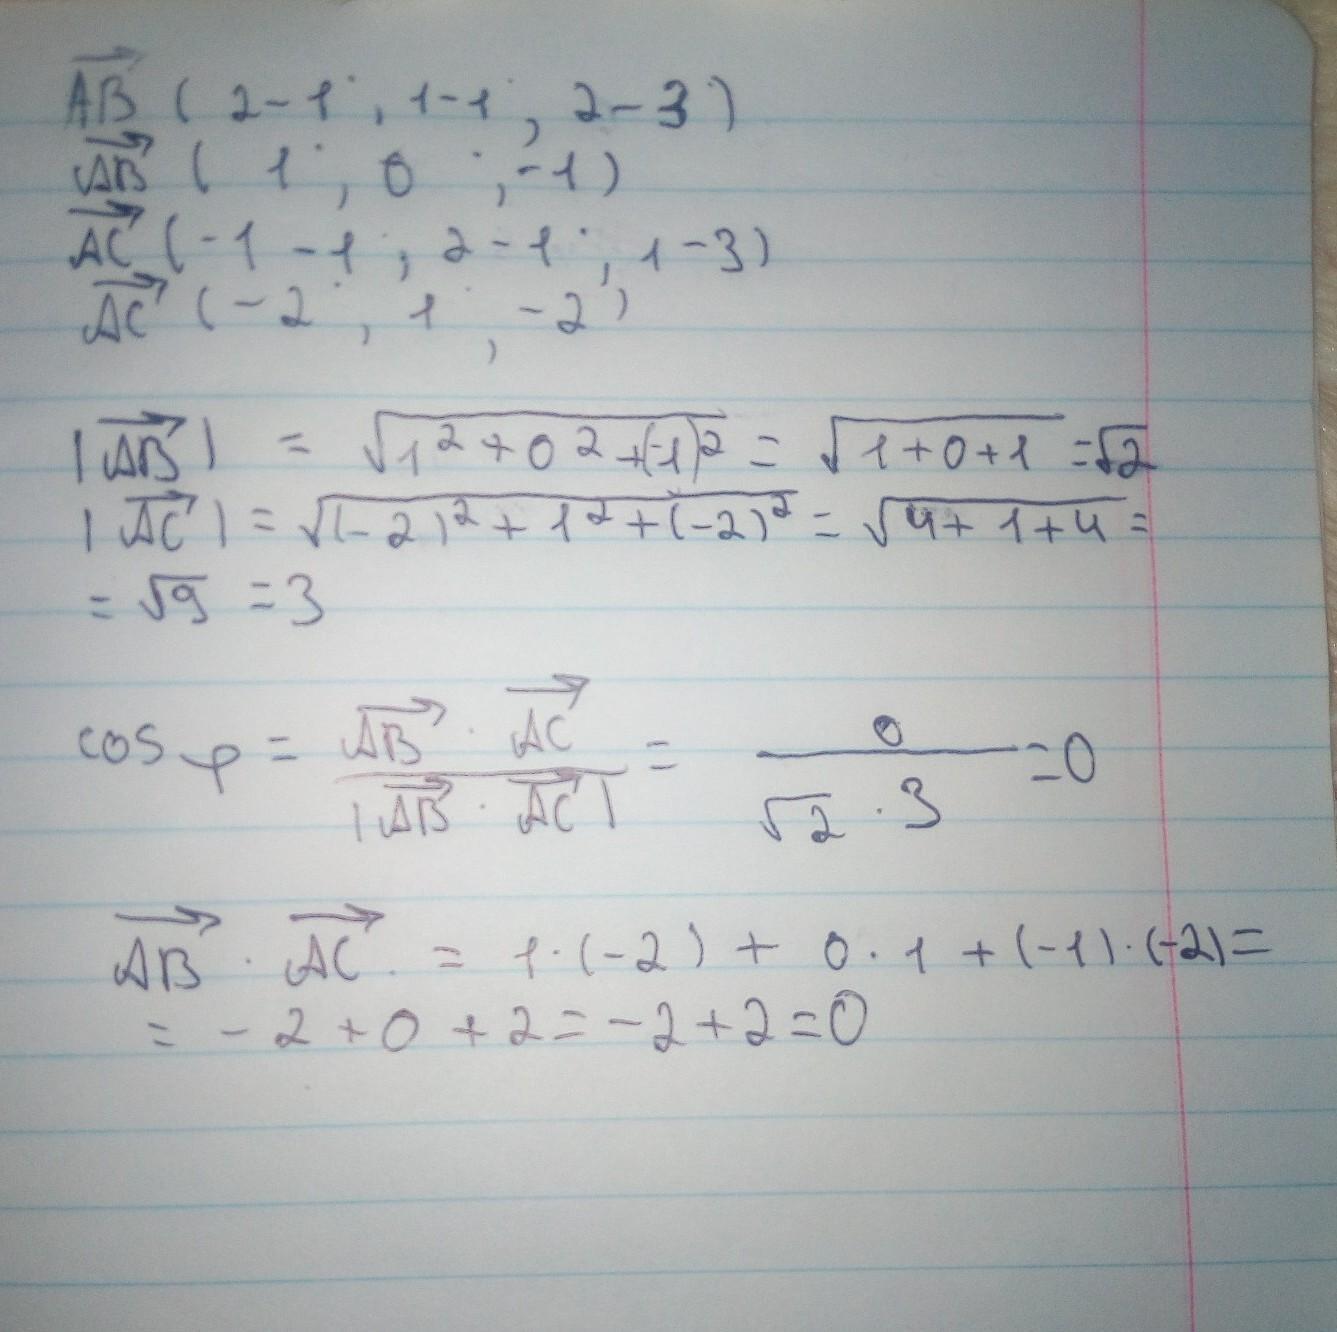 AB→ ( 2-1 , 1-1 , 2-3 )
AB→ ( 1 , 0 , -1 )
AC→ ( -1 -1 , 2-1 , 1-3 )
AC→ ( -2 , 1 , -2 )
|AB→| = √(1² + 0² + (-1)²) = √(1+0+1) = √2
|AC→| = √((-2)² + 1² + (-2)²) = √(4+1+4) =
= √9 = 3
cos φ = (AB→ · AC→) / |AB→ · AC→| = 0 / (√2 · 3) = 0
AB→ · AC→ = 1·(-2) + 0·1 + (-1)·(-2) =
= -2 + 0 + 2 = -2 + 2 = 0